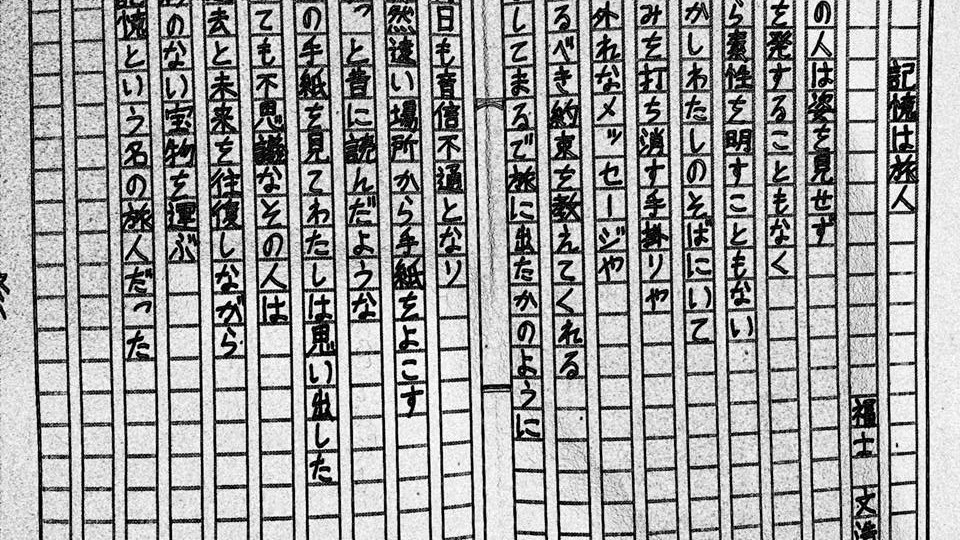 記憶は旅人
福士 文浩
の人は姿を見せず
を発することもなく
ら素性を明すこともない
かしわたしのそばにいて
みを打ち消す手掛りや
外れなメッセージや
るべき約束を教えてくれる
してまるで旅に出たかのように
日も音信不通となり
然遠い場所から手紙をよこす
っと昔に読んだような
の手紙を見てわたしは思い出した
ても不思議なその人は
去と未来を往復しながら
のない宝物を運ぶ
記憶という名の旅人だった